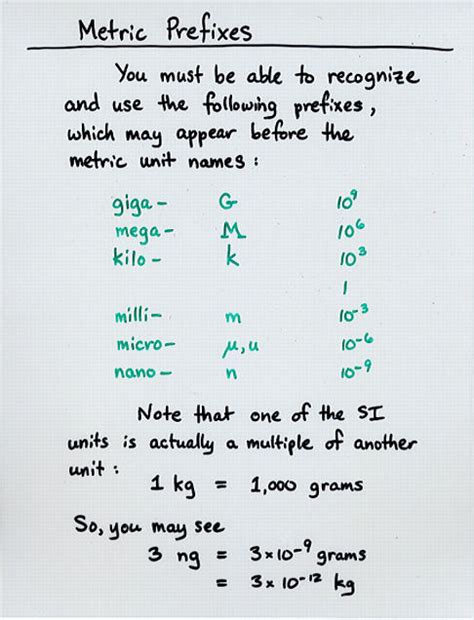 Metric Prefixes
You must be able to recognize
and use the following prefixes,
which may appear before the
metric unit names:
giga- G 10⁹
mega- M 10⁶
kilo- k 10³
1
milli- m 10⁻³
micro- μ, u 10⁻⁶
nano- n 10⁻⁹
Note that one of the SI
units is actually a multiple of another
unit:
1 kg = 1,000 grams
So, you may see
3 ng = 3×10⁻⁹ grams
= 3×10⁻¹² kg